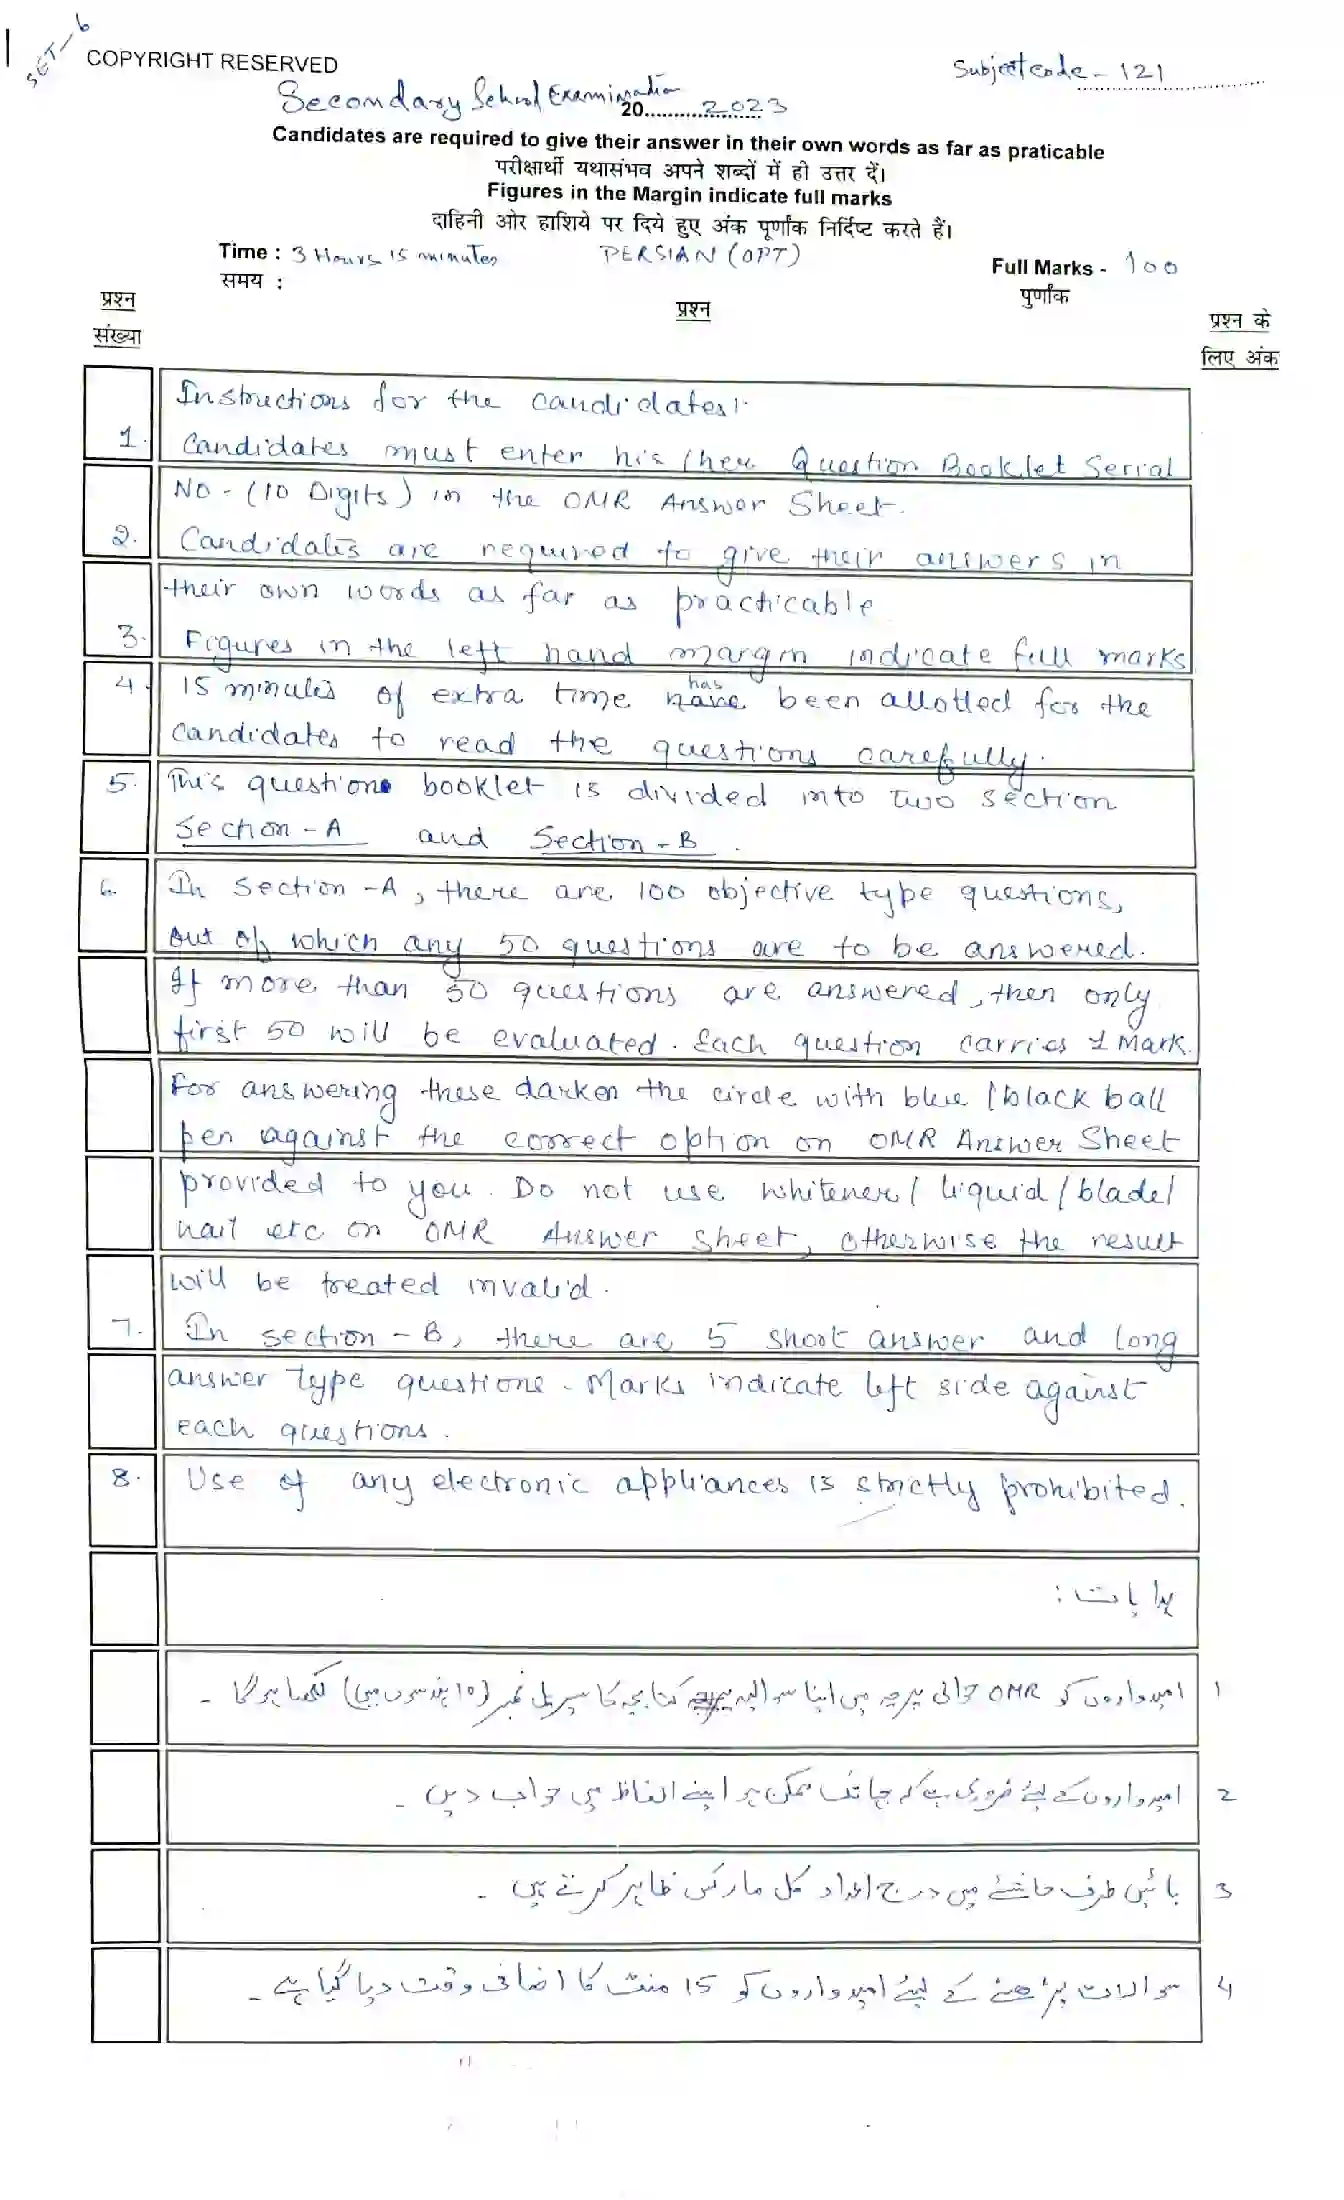 SET-6
COPYRIGHT RESERVED
Subject code - 121
Secondary School Examination
20..........2023
Candidates are required to give their answer in their own words as far as praticable
परीक्षार्थी यथासंभव अपने शब्दों में ही उत्तर दें।
Figures in the Margin indicate full marks
दाहिनी ओर हाशिये पर दिये हुए अंक पूर्णांक निर्दिष्ट करते हैं।
Time : 3 Hours 15 minutes PERSIAN (OPT) Full Marks - 100
समय : पुर्णांक
प्रश्न संख्या
प्रश्न
प्रश्न के लिए अंक
Instructions for the candidates:
1. Candidates must enter his/her Question Booklet Serial
No - (10 Digits) in the OMR Answer Sheet.
2. Candidates are required to give their answers in
their own words as far as practicable
3. Figures in the left hand margin indicate full marks
4. 15 minutes of extra time has been allotted for the
candidates to read the questions carefully.
5. This question booklet is divided into two section
Section-A and Section-B.
6. In Section-A, there are 100 objective type questions,
out of which any 50 questions are to be answered.
If more than 50 questions are answered, then only
first 50 will be evaluated. Each question carries 1 Mark.
For answering these darken the circle with blue/black ball
pen against the correct option on OMR Answer Sheet
provided to you. Do not use whitener/liquid/blade/
nail etc on OMR Answer sheet, otherwise the result
will be treated invalid.
7. In section-B, there are 5 short answer and long
answer type questions. Marks indicate left side against
each questions.
8. Use of any electronic appliances is strictly prohibited.
ہدایات :
1 امیدواروں کو OMR جوابی پرچہ میں اپنا سوالیہ کتابچہ کا سیریل نمبر (10 ہندسوں میں) لکھنا ہوگا ۔
2 امیدواروں کے لیے ضروری ہے کہ جہاں تک ممکن ہو اپنے الفاظ میں جواب دیں ۔
3 بائیں طرف حاشیے میں درج اعداد کل مارکس ظاہر کرتے ہیں ۔
4 سوالات پڑھنے کے لیے امیدواروں کو 15 منٹ کا اضافی وقت دیا گیا ہے ۔